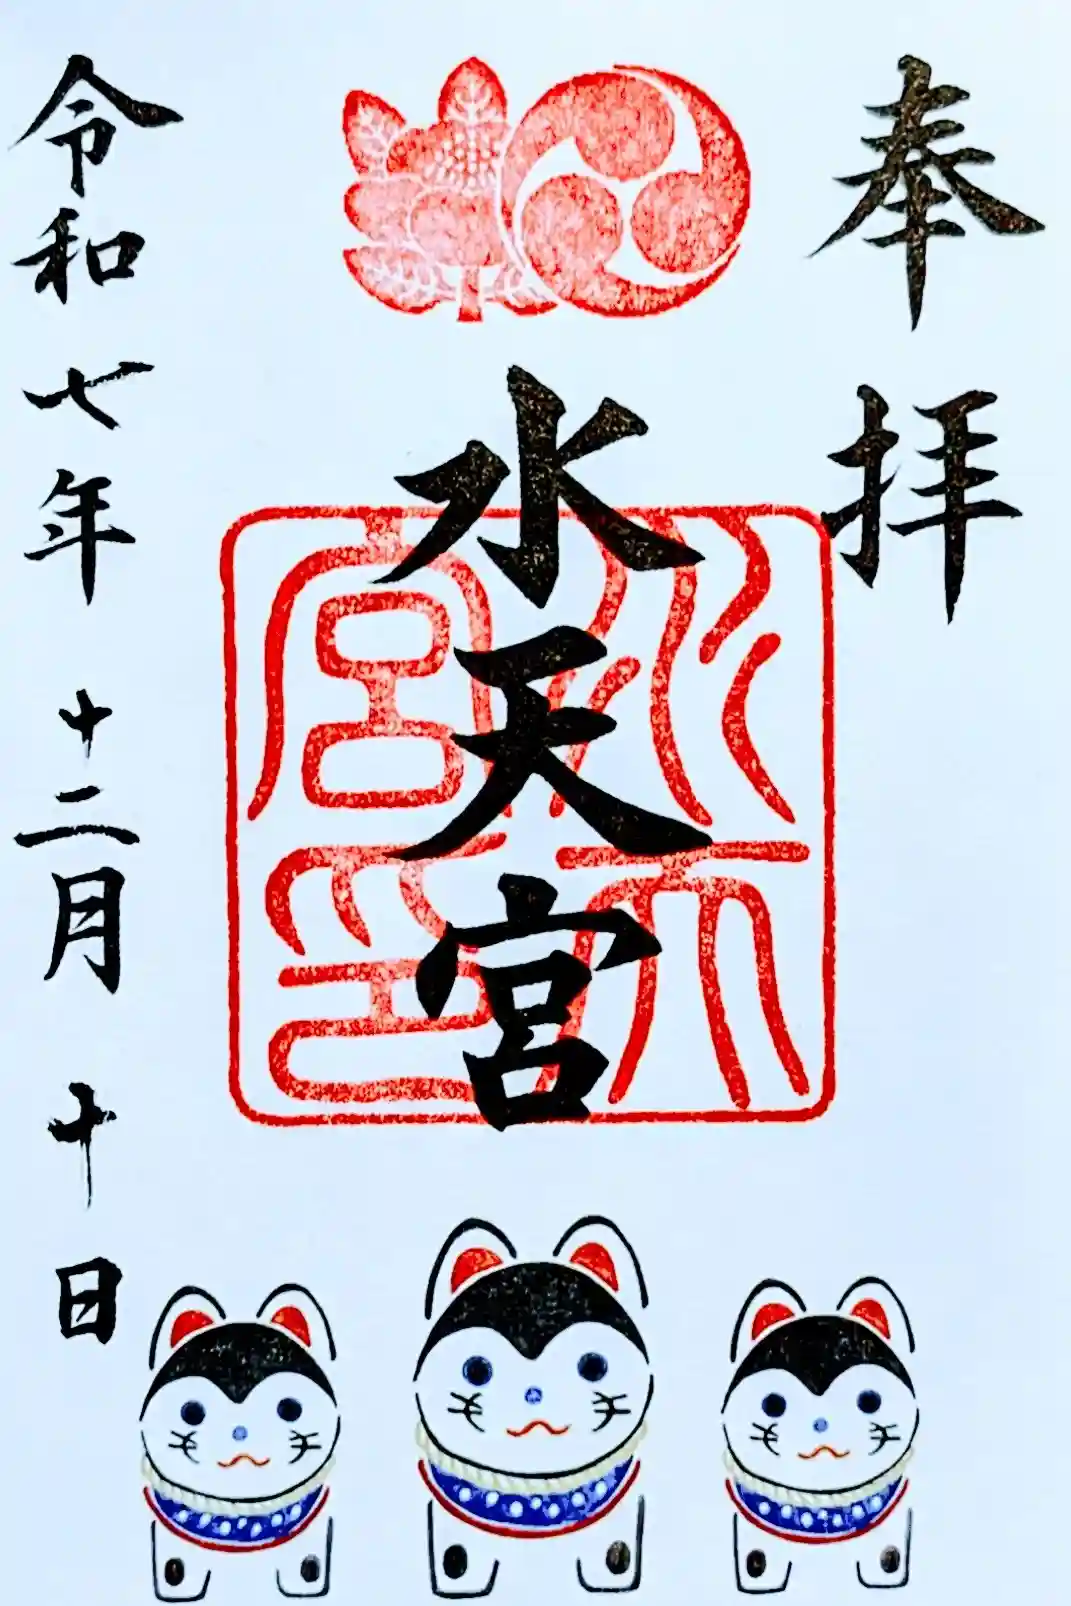 奉拝
水天宮
水天宮印
令和七年十二月十日